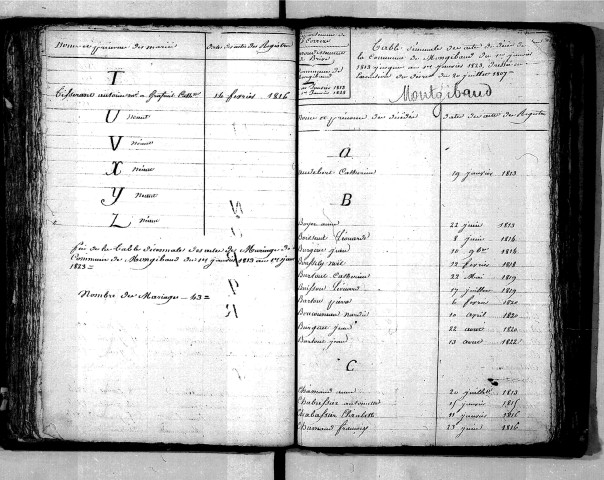 Noms et prénoms des mariés
Dates des actes des Registres
T
Tisserant antoine et Grafeuil Cath.ne
14 fevrier 1816
U néant
V néant
X néant
Y néant
Z néant
fin de la Table décennale des actes de Mariage de la
Commune de Mongibaud du 1er janvier 1813 au 1er janvier
1823 =
Nombre des Mariages - 43 =
Département de
la Corrèze
arrondissement
de Brive
Commune de
Table décennale des actes de décès de
la Commune de Mongibaud du 1er janvier
1813 jusques au 1er janvier 1823, dressée en
exécution du décret du 20 juillet 1807 =
Montgibaud
Noms et prénoms des décédés
dates des actes des Registres
A
Catherine 19 janvier 1813
B
Boyer anne 22 juin 1813
Boissaut Léonard 8 juin 1816
Burgeau jean 10 9bre 1816
12 février 1818
Bartout Catherine 22 Mai 1819
Buisson Léonard 17 juillet 1819
Bartou pierre 6 fevrier 1820
10 avril 1820
Burgeau jean 22 aout 1820
Bartout jean 13 aout 1822
C
Chamaud anne 20 juillet 1813
Chabassier antoinette 15 janvier 1815
Chabassier Charlotte 11 janvier 1816
Chamaud françois 23 juin 1816